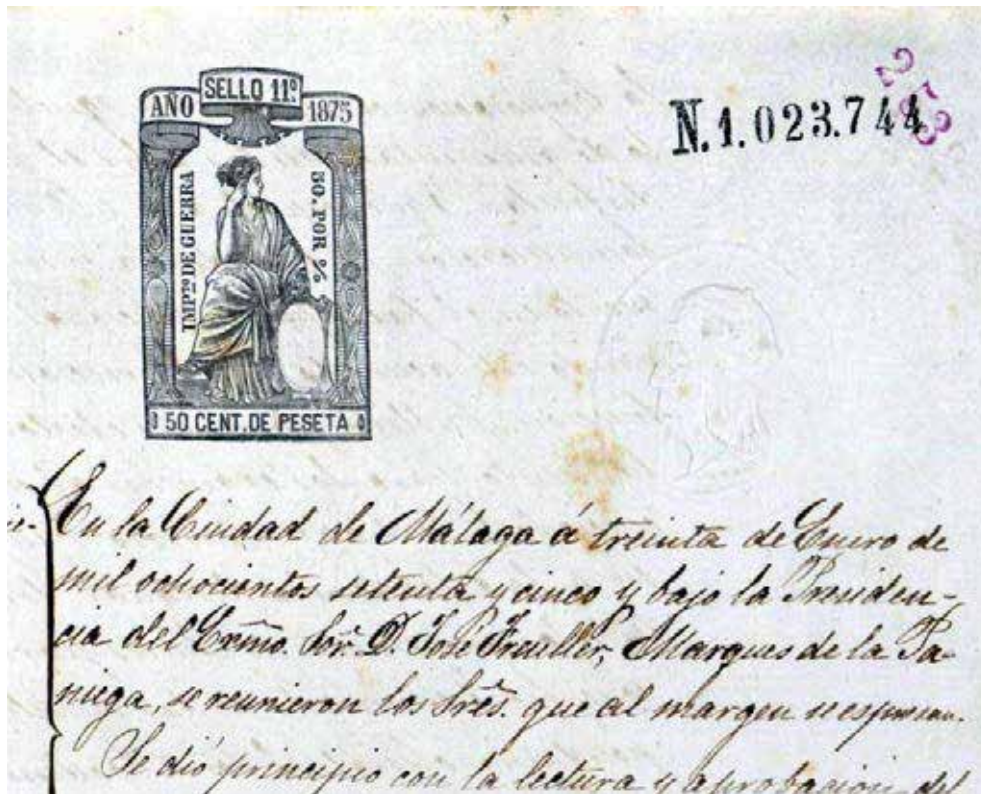 SELLO 11º
AÑO 1875
IMPTO DE GUERRA
50. POR %
50 CENT. DE PESETA
N.1.023.744
En la Ciudad de Málaga á treinta de Enero de
mil ochocientos setenta y cinco y bajo la Presiden-
cia del Exmo. Sor. D. José Freuller, Marques de la Pa-
niega, se reunieron los Sres. que al margen se espresan.
Se dió principio con la lectura y aprobacion del